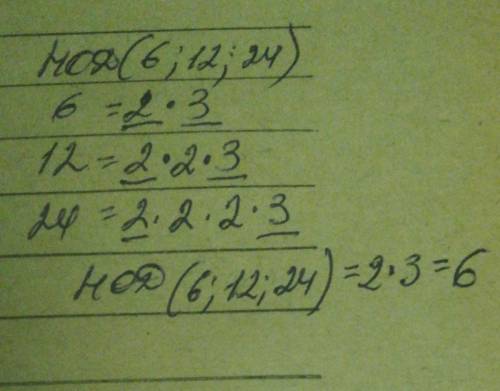 НОД(6;12;24)
6 = 2·3
12 = 2·2·3
24 = 2·2·2·3
НОД(6;12;24) = 2·3 = 6